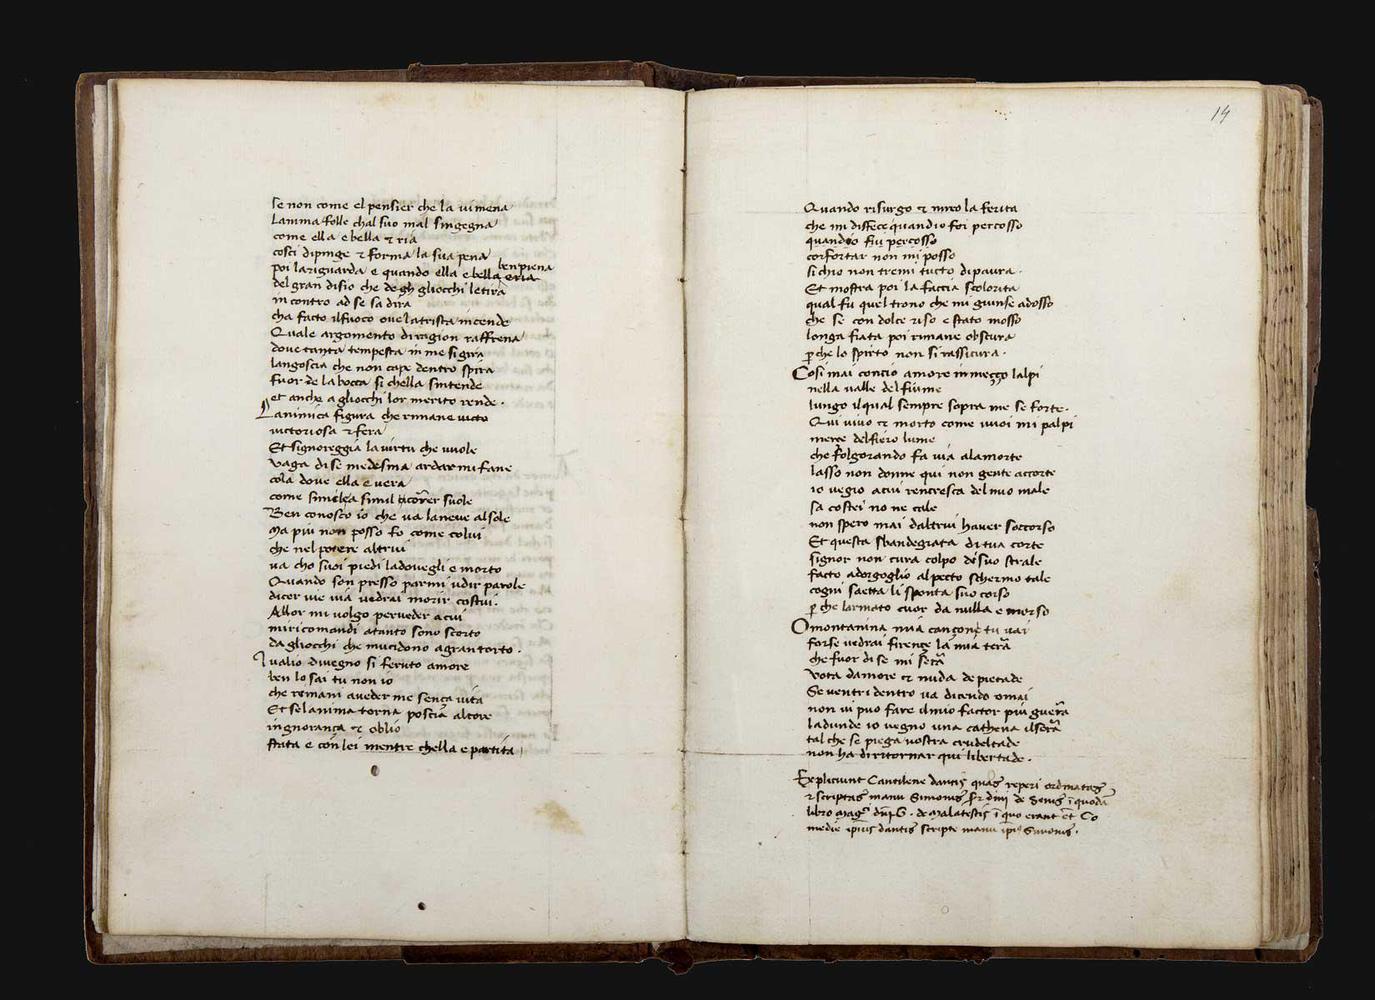 se non come el pensier che la vi mena
Lanima folle chal suo mal singegna
come ella e bella & ria
cosci dipinge & forma la sua pena
poi la riguarda e quando ella e bella eria ben piena
del gran disio che de gh gliocchi le tira
in contro ad se sa dira
cha facto il fuoco ove la trista incende
Quale argomento di ragion raffrena
dove tanta tempesta in me si gira
langoscia che non cape dentro spira
fuor de la bocca si chella sintende
et anche a gliocchi lor merito rende.
Lanimica figura che rimane
victoriosa & fera
Et signoreggia la virtu che vuole
vaga di se medesma andar mi fane
cola dove ella e vera
come simile a simil correr suole
Ben conosco io che va la neve al sole
Ma piu non posso fo come colui
che nel potere altrui
va cho suoi piedi la dovegli e morto
Quando son presso parmi udir parole
dicer vie via vedrai morir costui.
Allor mi volgo per veder a cui
mi ricomandi a tanto sono scorto
da gliocchi che mucidono a gran torto.
Qual io divegno si feruto amore
ben lo sai tu non io
che rimani a veder me senca vita
Et se lanima torna poscia al core
ingnoranca & oblio
stata e con lei mentre chella e partita
14
Quando risurgo & miro la ferita
che mi disfece quandio foi percosso
quandio fui percosso
confortar non mi posso
si chio non tremi tutto di paura.
Et mostra poi la faccia scolorita
qual fu quel trono che mi giunse adosso
che se con dolce riso e stato mosso
longa fiata poi rimane obscura
p che lo spirto non si rassicura.
Cosi mai concio amore in mecço lalpi
nella valle del fiume
lungo il qual sempre sopra me se forte.
Qui vivo & morto come vuoi mi palpi
merce del fiero lume
che folgorando fa via a la morte
lasso non donne qui non gente accorte
io vegio a cui rencresca del mio male
sa costei no ne cale
non spero mai daltrui haver soccorso
Et questa sbandegiata di tua corte
signor non cura colpo de suo strale
facto a dorgoglio al pecto schermo tale
cogni saetta li sponta suo corso
p che larmato cuor da nulla e morso
O montanina mia cançone tu vai
forse vedrai firençe la mia terra
che fuor di se mi serra
vota damore & nuda de pietade
Se ventri dentro va dicendo omai
non vi puo fare il mio factor piu guerra
la dunde io vegno una cathena il serra
tal che se piega vostra crudeltade
non ha di ritornar qui libertade.
Expliciunt Cantilene dantis quas reperi ordinatas
& scriptas manu Simonis de Senis i quodā
libro de Malatestis i quo erant et Co
medie ipius dantis scripte manu ipi Simonis.